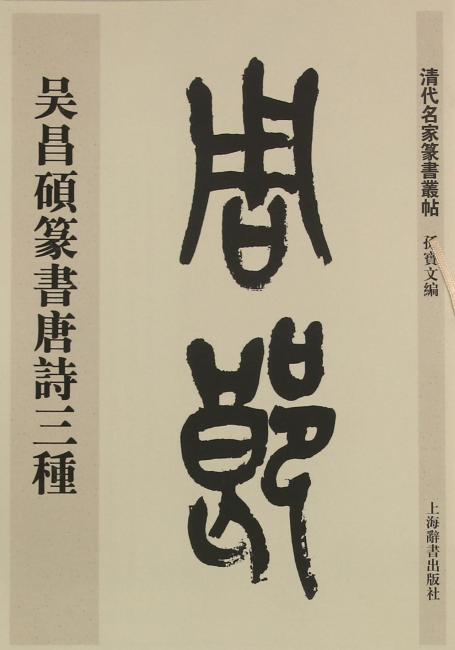 清代名家篆書叢帖 孫寶文編
上海辭書出版社
周郎
吴昌碩篆書唐詩三種